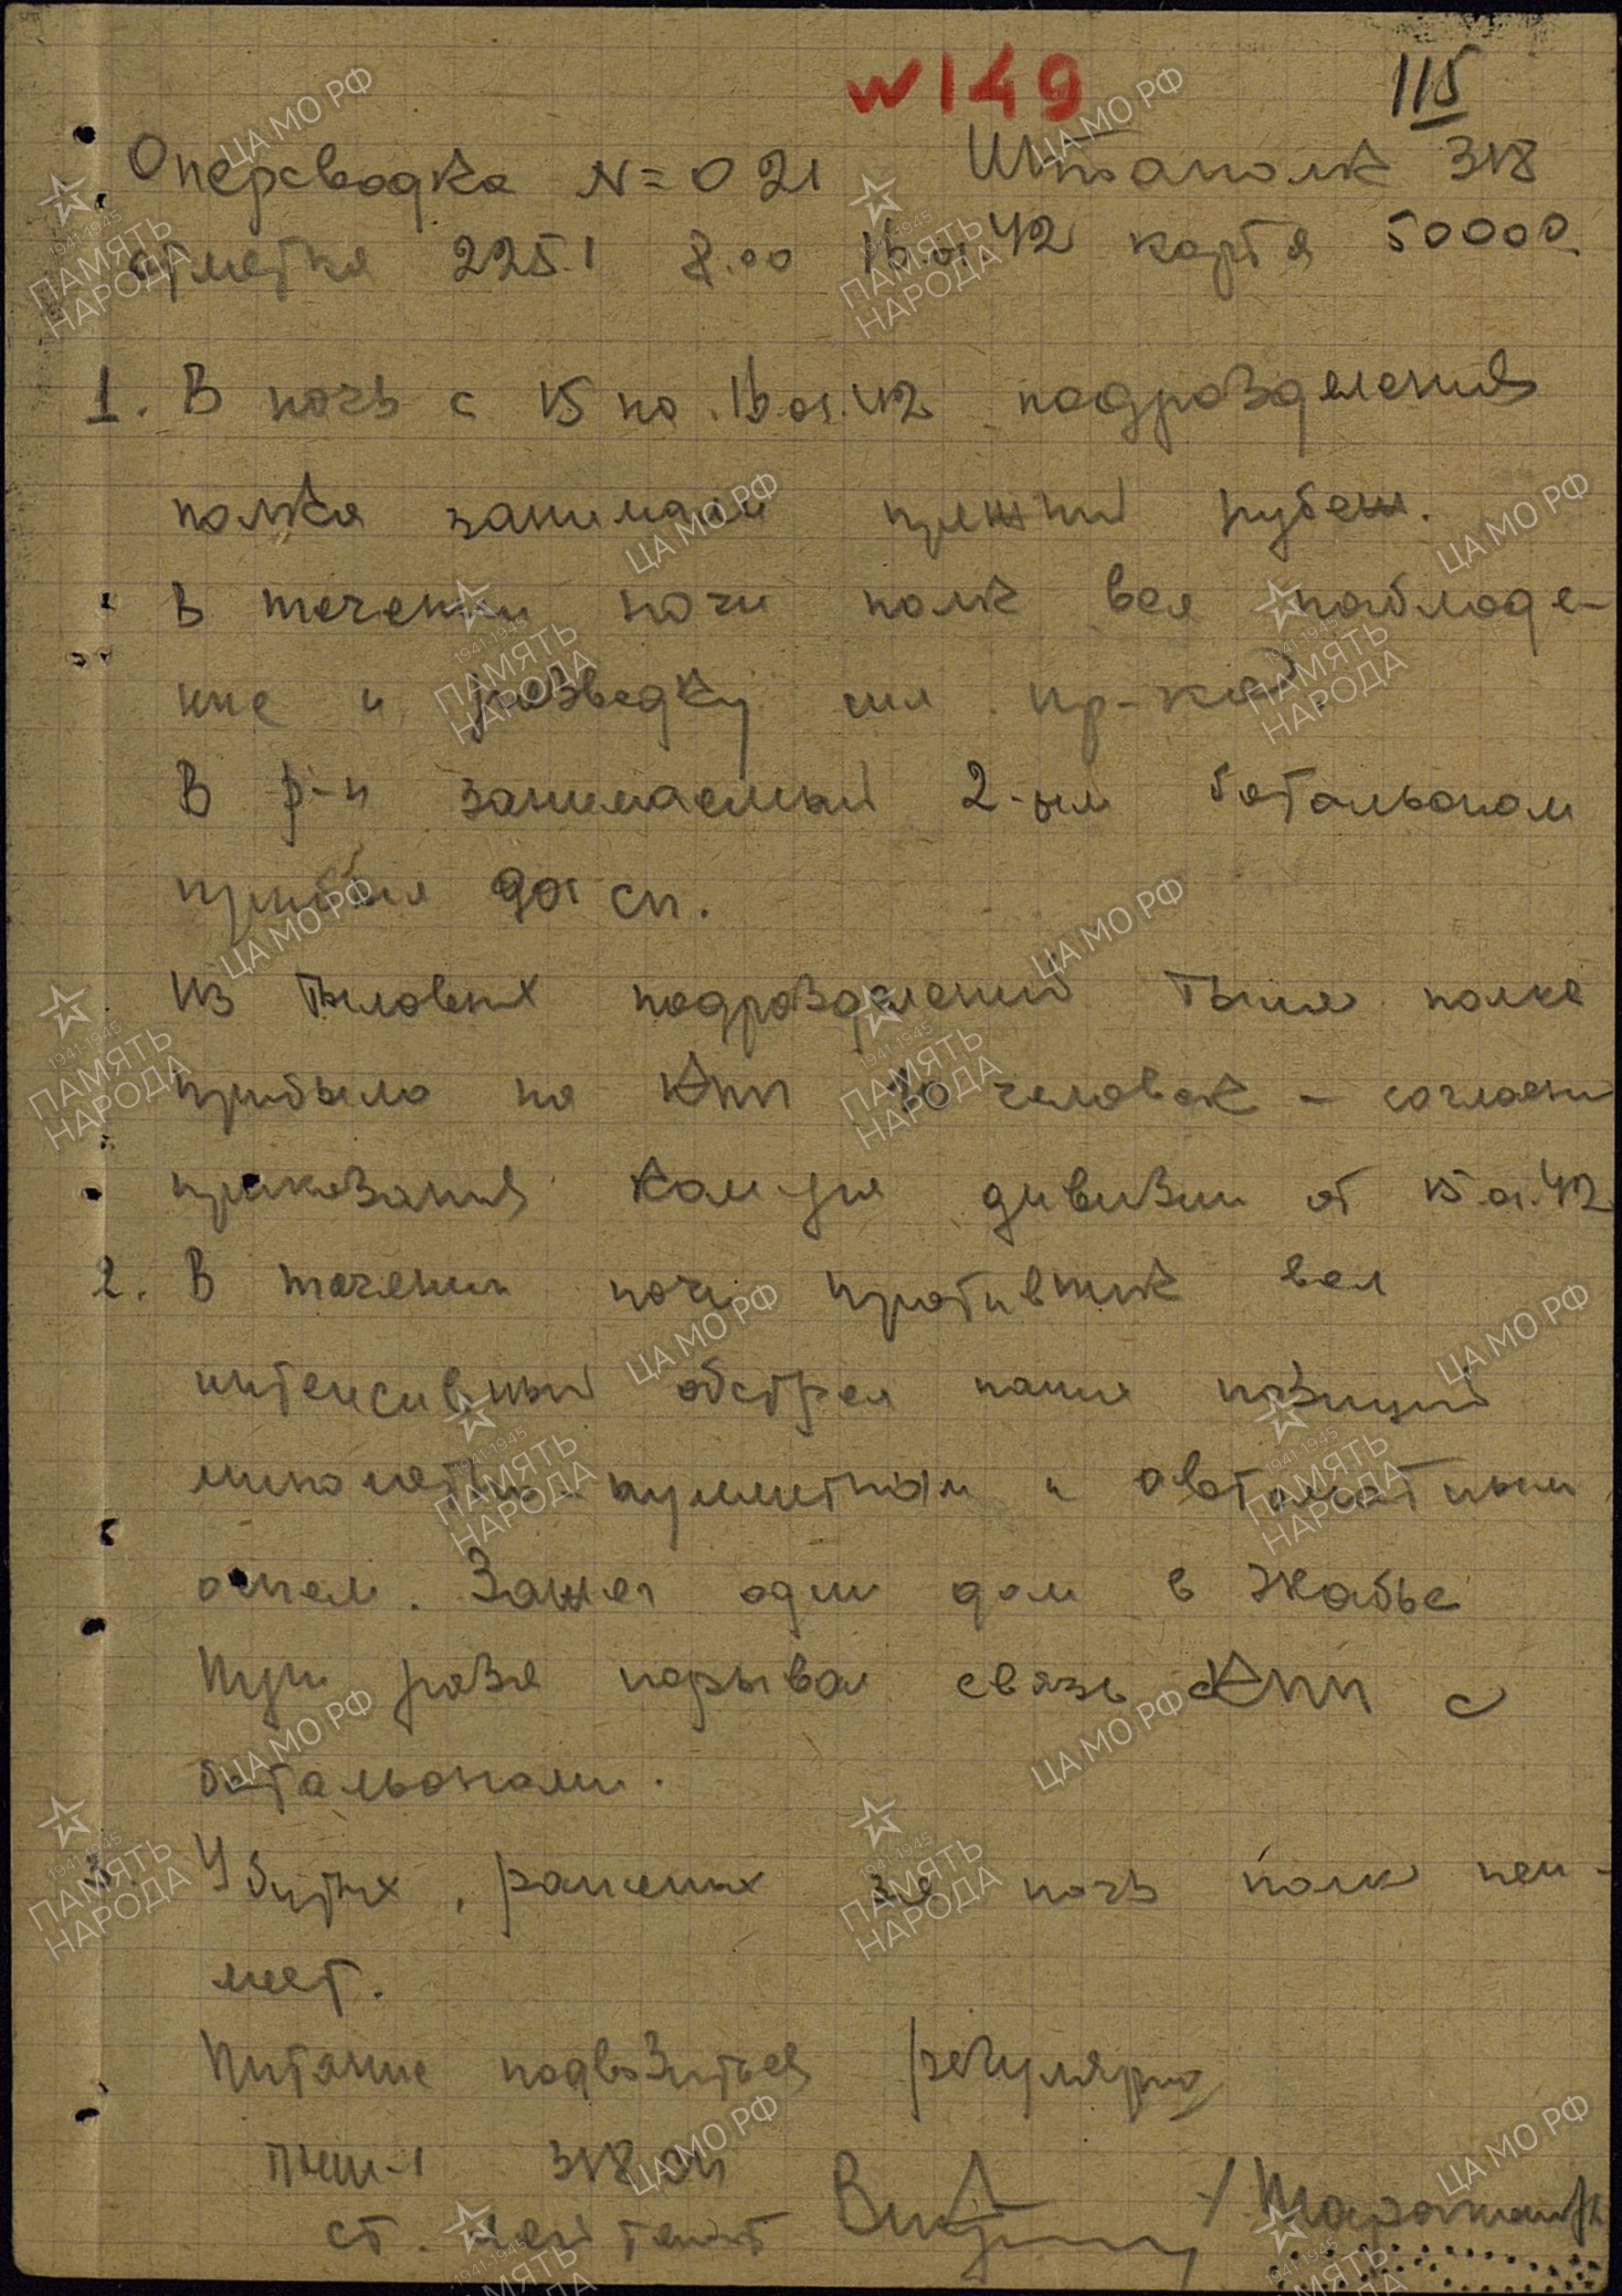 N149
115
Оперсводка N=021 Штаполк 318
отметка 225.1 8.00 16.01.42 карта 50000
1. В ночь с 15 на 16.01.42 подразделения
полка занимали прежний рубеж.
В течении ночи полк вел наблюде-
ние и разведку сил пр-ка.
В р-н занимаемый 2-ым батальоном
прибыл 901 сп.
Из тыловых подразделений тыла полка
прибыло на КПП 10 человек - согласно
приказания Ком-ра дивизии от 15.01.42
2. В течении ночи противник вел
интенсивный обстрел наших позиций
минометн. пулеметным и автоматным
огнем. Зажег один дом в Жабье
Три раза порывал связь КПП с
батальонами.
3. Убитых, раненых за ночь полк неи-
меет.
Питание подвозиться регулярно
ПНШ-1 318 сп
ст. лейтенант